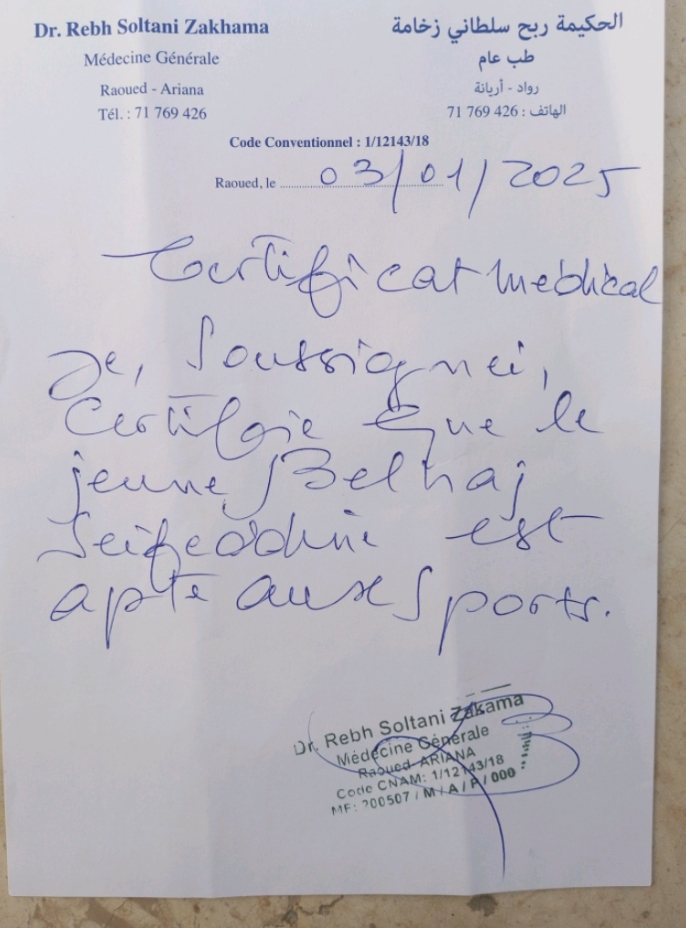 Dr. Rebh Soltani Zakhama
Médecine Générale
Raoued - Ariana
Tél. : 71 769 426
الحكيمة ربح سلطاني زخامة
طب عام
رواد - أريانة
الهاتف : 426 769 71
Code Conventionnel : 1/12143/18
Raoued, le 03/01/2025
Certificat medical
Je, Soussignei,
Certifie que le
jeune Belhaj
Seifeddine est
apte aux sports.
Dr. Rebh Soltani Zakama
Médecine Générale
Raoued-ARIANA
Code CNAM: 1/12143/18
MF: 200507 / M / A / P / 000